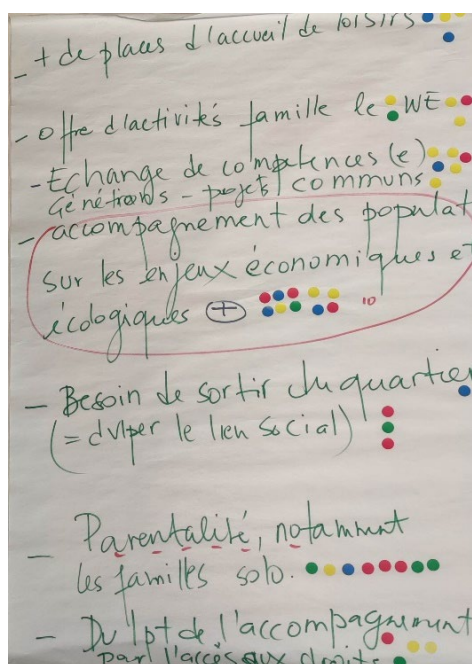 - + de places d'accueil de loisirs
- Offre d'activités famille le WE
- Echange de compétences (e)
Générations - projets communs
- accompagnement des populat
sur les enjeux économiques et
écologiques + 10
- Besoin de sortir du quartier
(= dvlper le lien social)
- Parentalité, notamment
les familles solo.
- Dvlpt de l'accompagnement
par l'accès aux droits